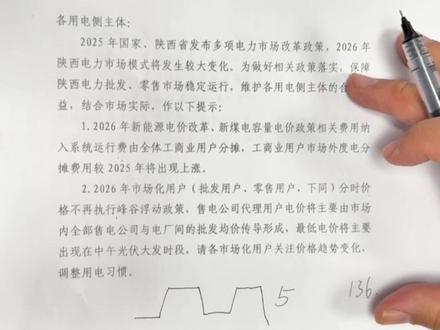 各用电侧主体：
2025 年国家、陕西省发布多项电力市场改革政策，2026 年
陕西电力市场模式将发生较大变化。为做好相关政策落实，保障
陕西电力批发、零售市场稳定运行，维护各用电侧主体的
益，结合市场实际，作以下提示：
1.2026 年新能源电价改革、新煤电容量电价政策相关费用纳
入系统运行费由全体工商业用户分摊，工商业用户市场外度电分
摊费用较 2025 年将出现上涨。
2.2026 年市场化用户（批发用户、零售用户，下同）分时价
格不再执行峰谷浮动政策，售电公司代理用户电价将主要由市场
内全部售电公司与电厂间的批发均价传导形成，最低电价将主要
出现在中午光伏大发时段，请各市场化用户关注价格趋势变化，
调整用电习惯。
5
136